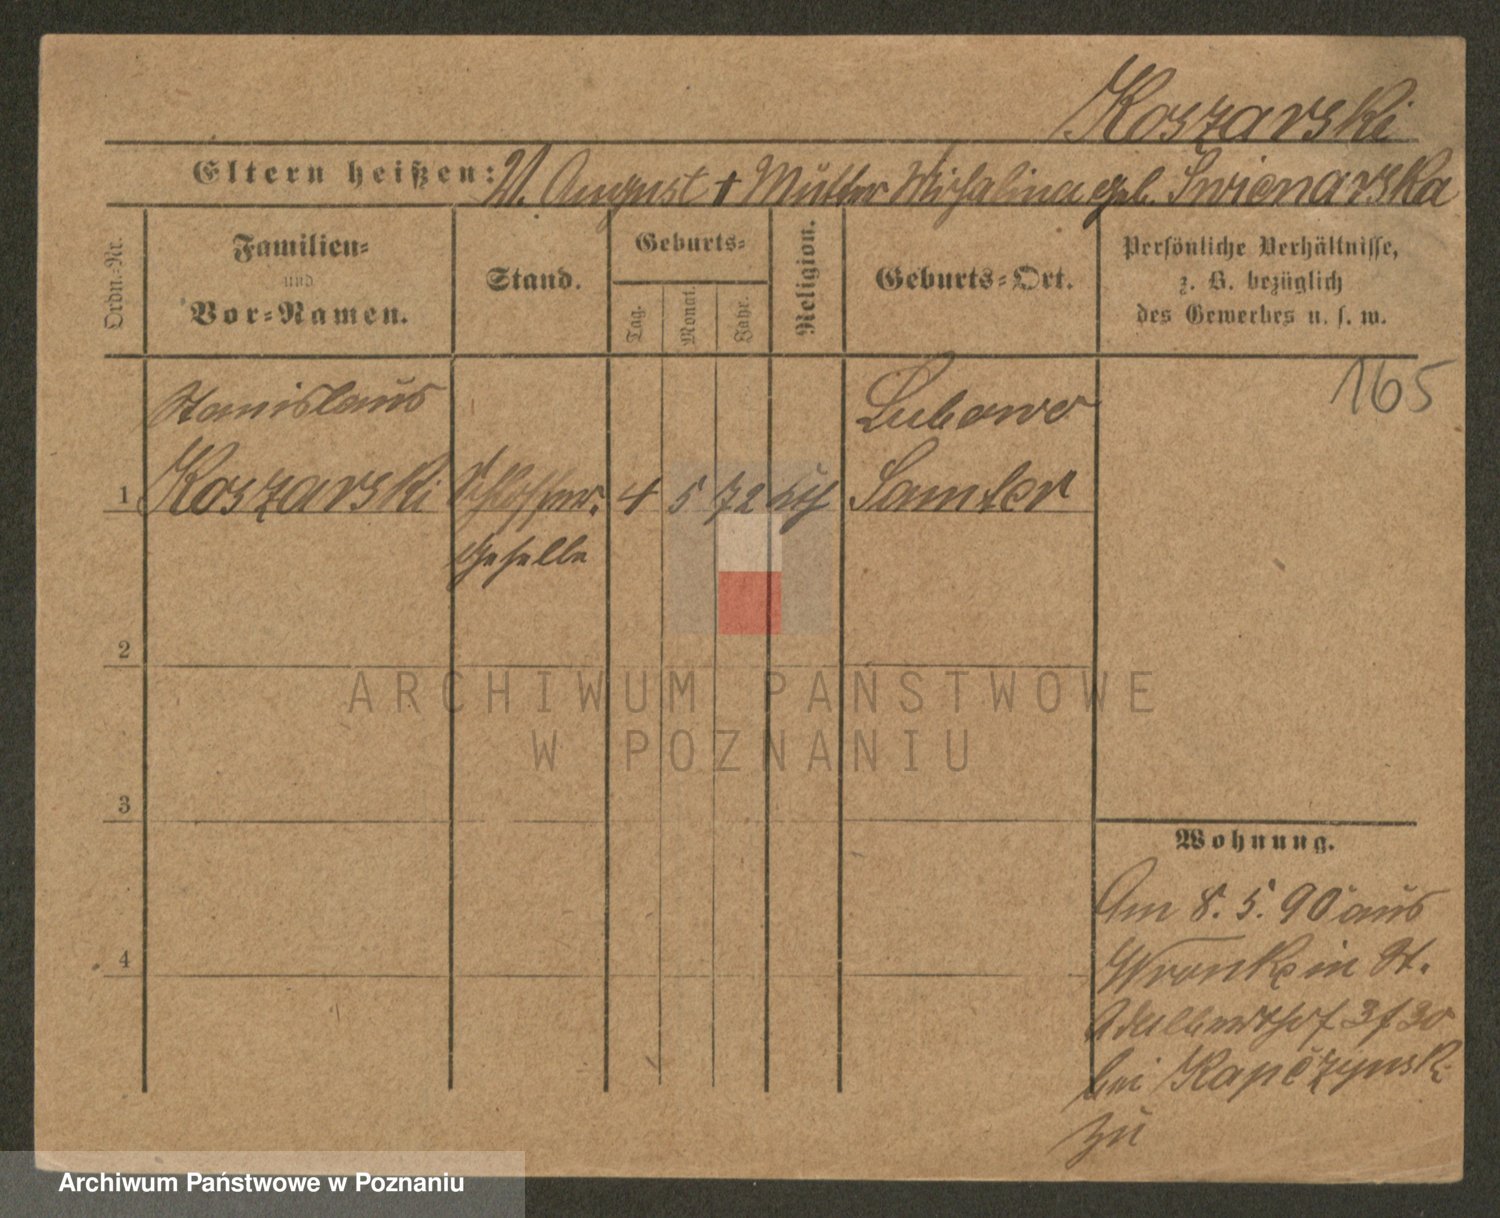 Koszarski
Eltern heißen: V. August † Mutter Michalina geb. Swinarska
Ordn.-Nr.
Familien-
und
Vor-Namen.
Stand.
Geburts-
Tag.
Monat.
Jahr.
Religion.
Geburts-Ort.
Persönliche Verhältnisse,
z. B. bezüglich
des Gewerbes u. s. w.
165
Stanislaus
Lubowo
1 Koszarski Schlosser- 4 5 72 kth Samter
Geselle
2
ARCHIWUM PAŃSTWOWE
W POZNANIU
3
Wohnung.
Am 8. 5. 90 aus
4
Wronke in St.
Adalberthof 3 f 30
bei Kapczynski
zu
Archiwum Państwowe w Poznaniu